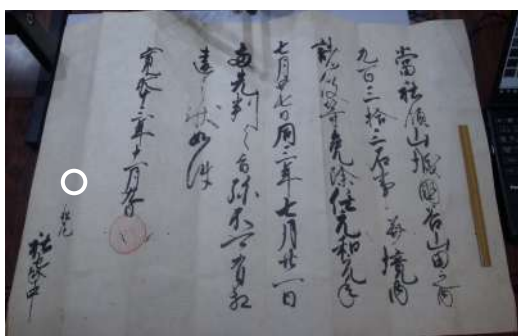 當社領山城國谷山田之内
九百三拾三石事并境内
諸役等免除任元和元年
七月廿七日同三年七月廿一日
両先判之旨弥不可有相
違之状如件
寛永十三年十一月
松尾
社家中